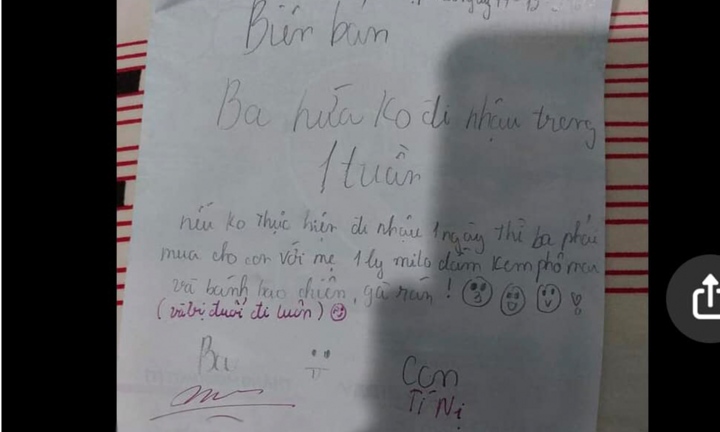 Biên bản
Ba hứa ko đi nhậu trong
1 tuần
nếu ko thực hiện đi nhậu 1 ngày thì ba phải
mua cho con với mẹ 1 ly milo dầm kem phô mai
và bánh bao chiên, gà rán !
(và bị đuổi đi luôn)
Ba
Con
Tí Nị